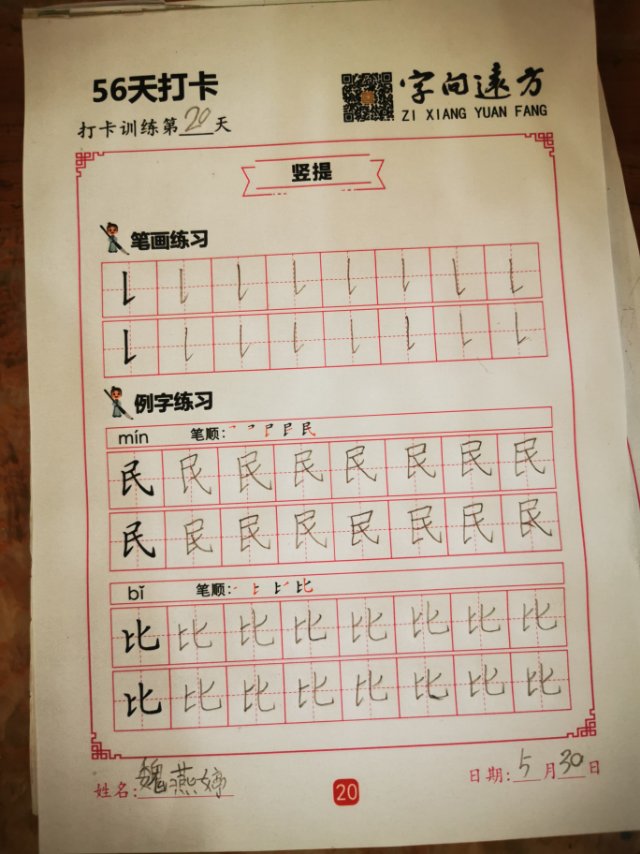 56天打卡
字向远方
ZI XIANG YUAN FANG
打卡训练第20天
竖提
笔画练习
例字练习
mín 笔顺:
民民民民民民民民
民民民民民民民民
bǐ 笔顺:
比比比比比比比比
比比比比比比比比
姓名:魏燕婷
20
日期:5月30日